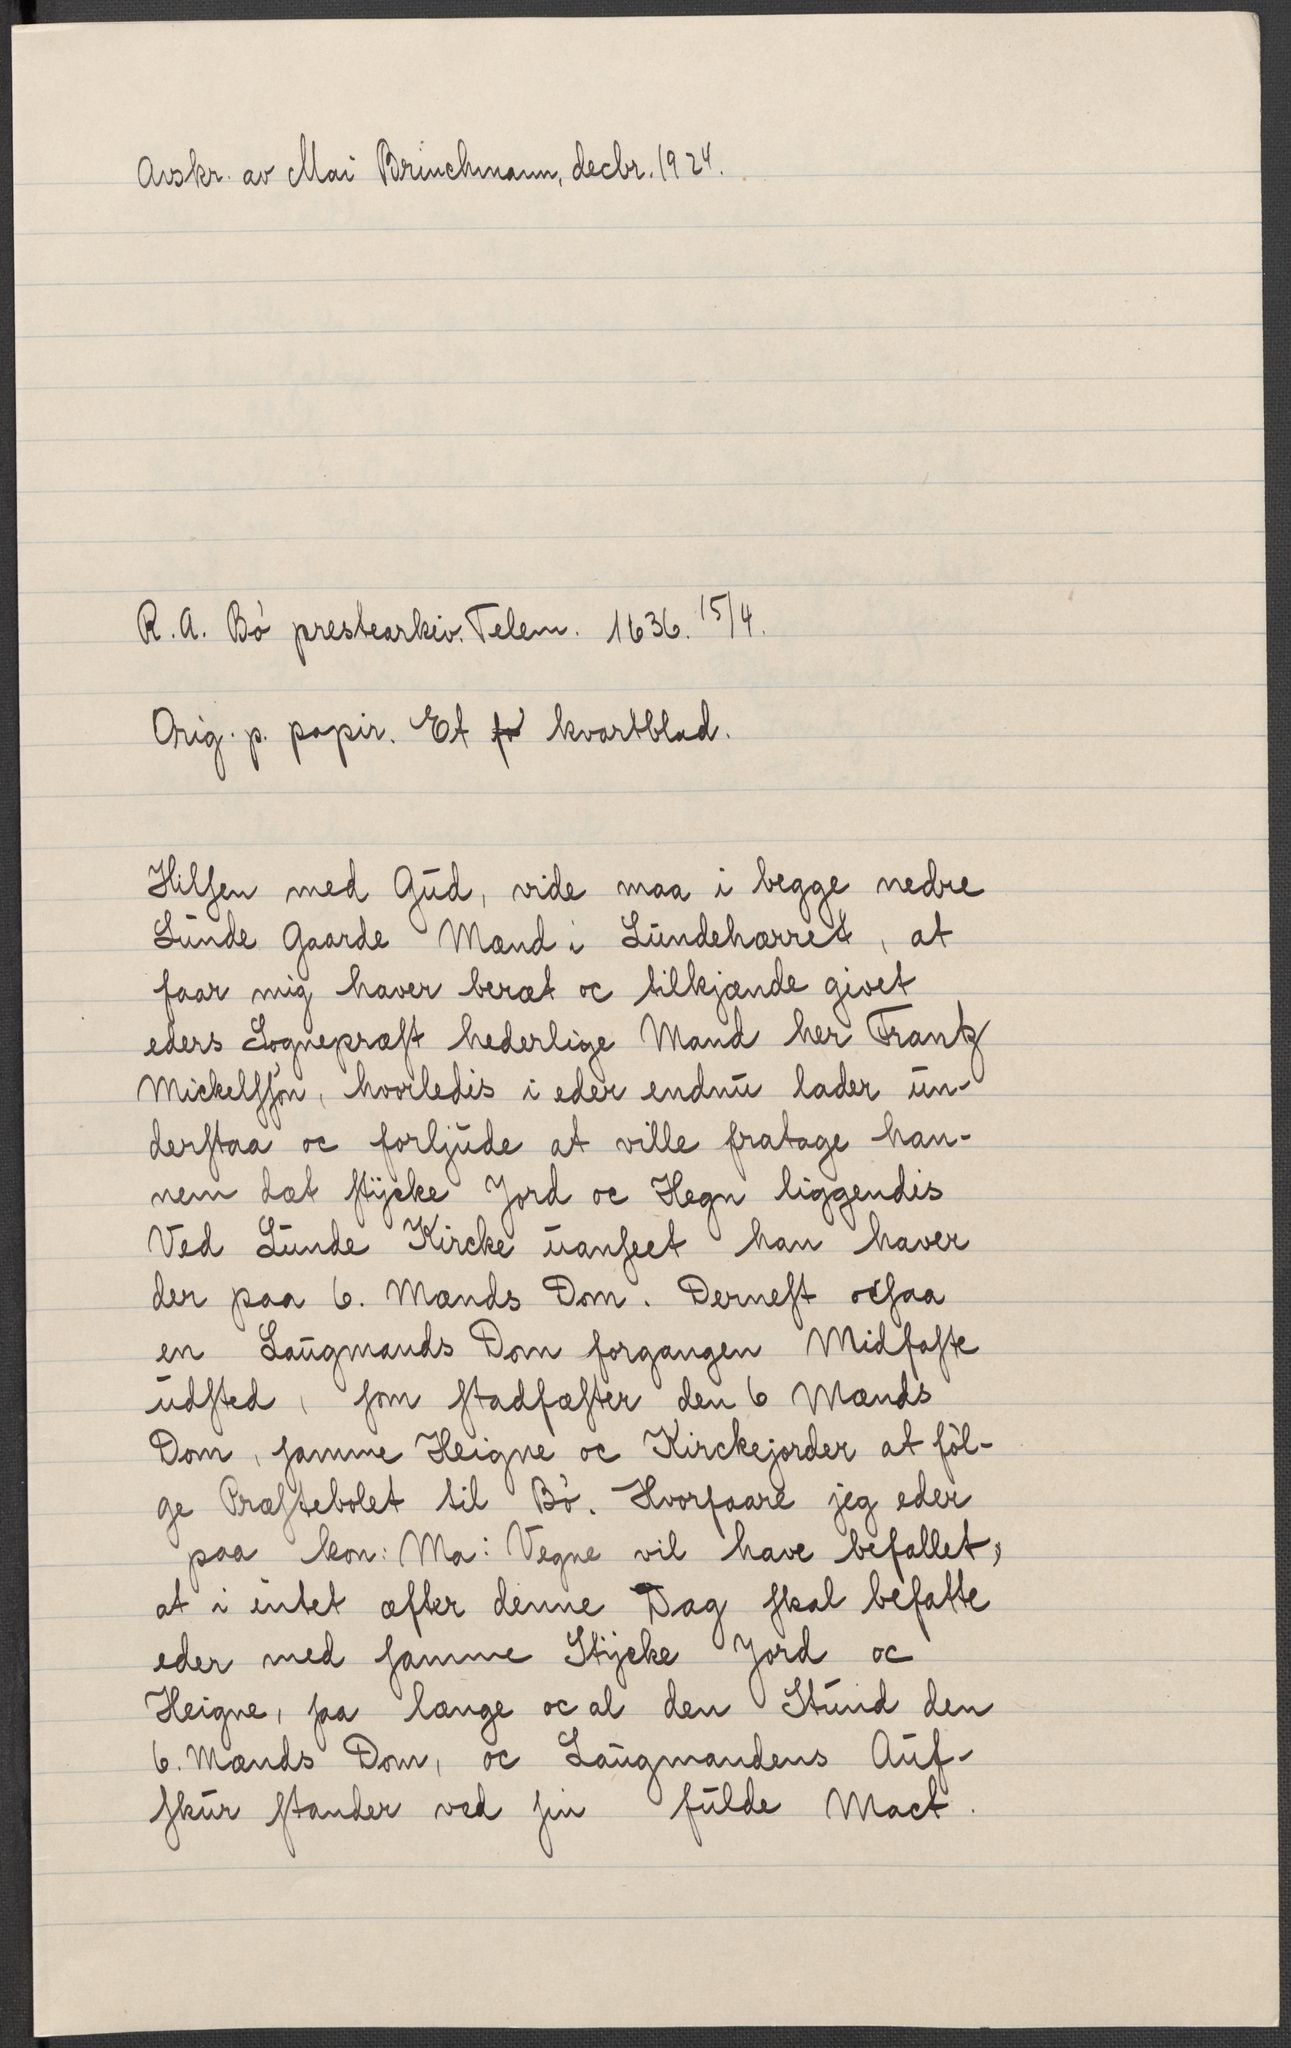 Avskr. av Mai Brinchmann, decbr. 1924.
R. A. Bö prestearkiv. Telem. 1636. 15/4.
Orig. p. papir. Et kvartblad.
Hilsen med Gud, vide maa i begge nedre
Lunde Gaarde Mænd i Lundehærret, at
faar mig haver beræt oc tilkjænde givet
eders Sognepræst hederlige Mand her Frantz
Mickelssøn, hvorledis i eder endnu lader un-
derstaa oc forljude at ville fratage han-
nem dæt stycke Jord oc Hegn liggendis
Ved Lunde Kircke uanseet han haver
der paa 6. Mænds Dom. Dernest ocsaa
en Laugmands Dom forgangen Midfaste
udsted, som stadfæster den 6 Mænds
Dom, samme Heigne oc Kirckejorder at föl-
ge Præstebolet til Bö. Hvorfaare jeg eder
paa kon: Ma: Vegne vil have befallet,
at i intet æfter denne Dag skal befatte
eder med samme Stycke Jord oc
Heigne, saa længe oc al den Stund den
6. Mænds Dom, oc Laugmandens Auf-
skur stander ved sin fulde Mact.